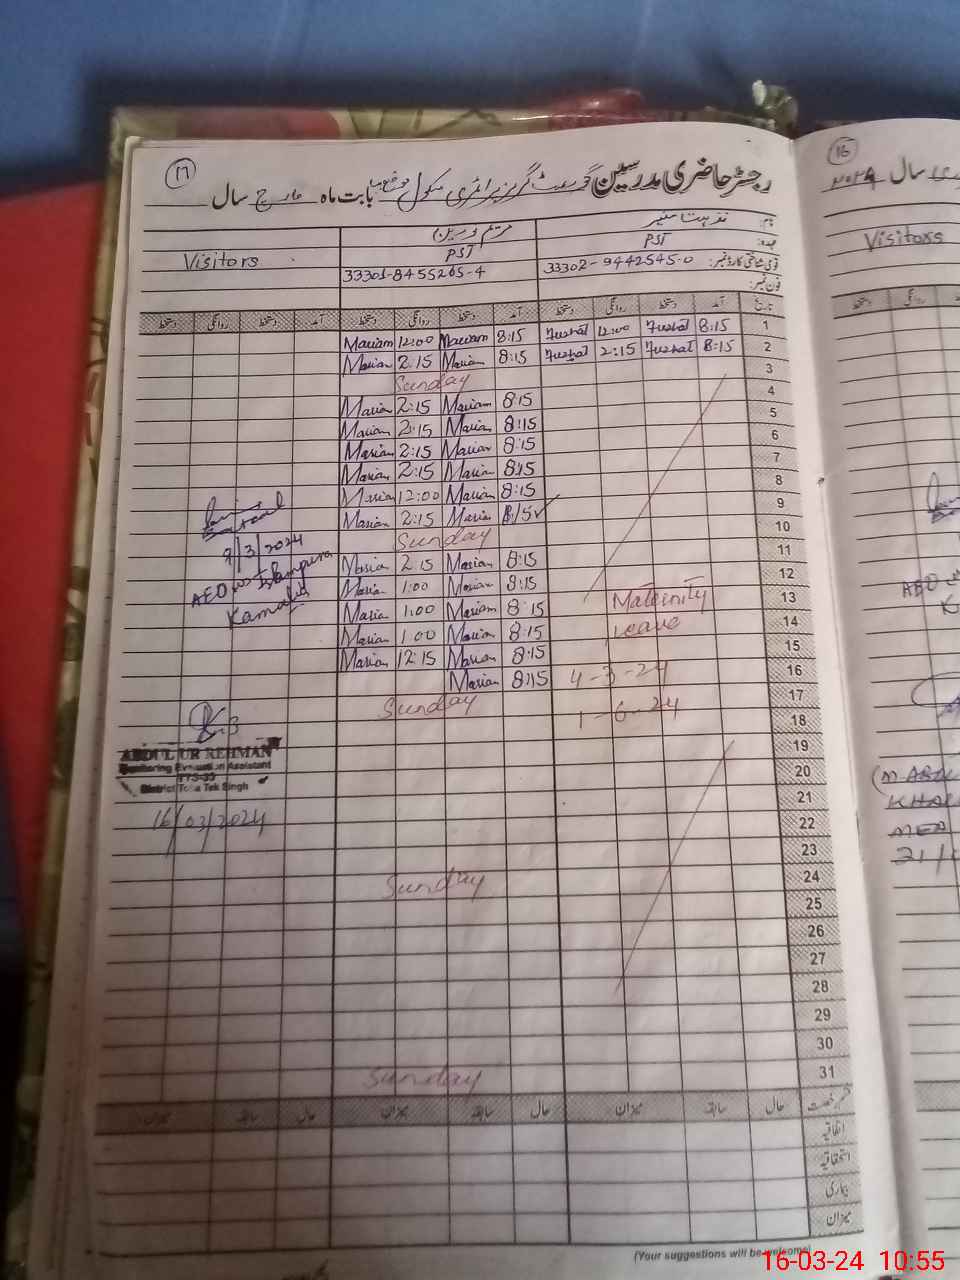 17
رجسٹر حاضری مدرسین گورنمنٹ گرلز پرائمری سکول بابت ماہ مارچ سال
نام:
عہدہ: PST PST Visitors
قومی شناختی کارڈ نمبر: 33302-9442545-0 33301-8455265-4
فون نمبر:
تاریخ آمد دستخط روانگی دستخط آمد دستخط روانگی دستخط آمد دستخط روانگی دستخط
1 8:15 Fuzhat 12:00 Fuzhat 8:15 Mariam 12:00 Mariam
2 8:15 Fuzhat 2:15 Fuzhat 8:15 Mariam 2:15 Mariam
3 Sunday
4 8:15 Mariam 2:15 Mariam
5 8:15 Mariam 2:15 Mariam
6 8:15 Mariam 2:15 Mariam
7 8:15 Mariam 2:15 Mariam
8 8:15 Mariam 12:00 Mariam
9 8:15 Mariam 2:15 Mariam
10 Sunday
11 8:15 Mariam 2:15 Mariam
12 8:15 Mariam 1:00 Mariam
13 8:15 Mariam 1:00 Mariam
14 8:15 Mariam 1:00 Mariam
15 8:15 Mariam 12:15 Mariam
16 8:15 Mariam
17 Sunday
18
19
20
21
22
23
24 Sunday
25
26
27
28
29
30
31 Sunday
Maternity
leave
4-3-24
1-6-24
9/3/2024
AEO
Kamalia
ABDUL UR REHMAN
Monitoring Evaluation Assistant
District Toba Tek Singh
16/03/2024
حال سابقہ میزان حال سابقہ میزان حال سابقہ میزان
اتفاقیہ
استحقاقیہ
بیماری
میزان
(Your suggestions will be welcome)
16
سال
Visitors
AEO
16-03-24 10:55